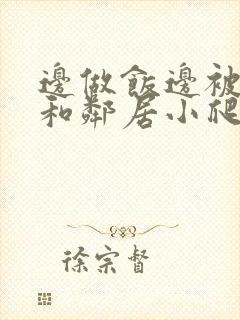 邊做飯邊被
和鄰居小爬
徐宗督